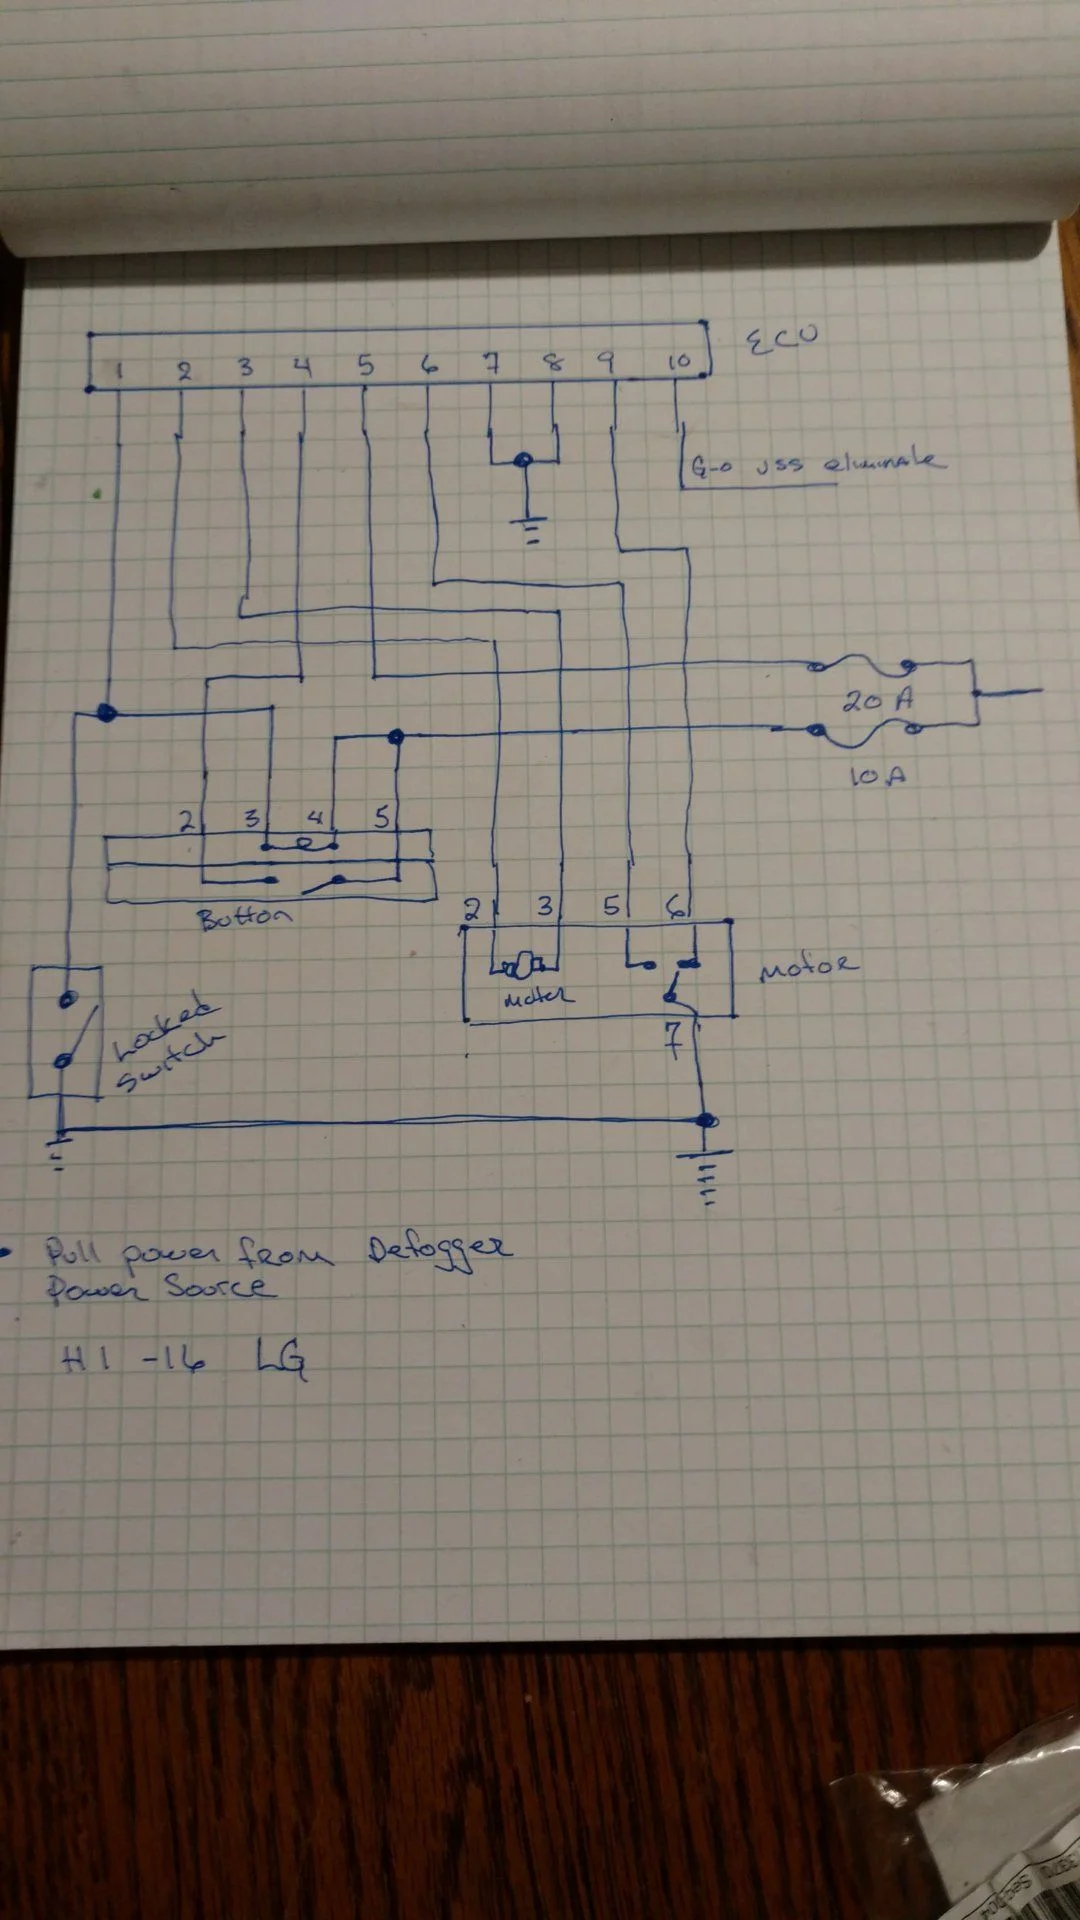 ECU
1 2 3 4 5 6 7 8 9 10
G-O VSS eliminate
20 A
10 A
2 3 4 5
Button
2 3 5 6
Motor
Motor
7
Locked
Switch
• Pull power from Defogger
Power Source
H1 -16 LG